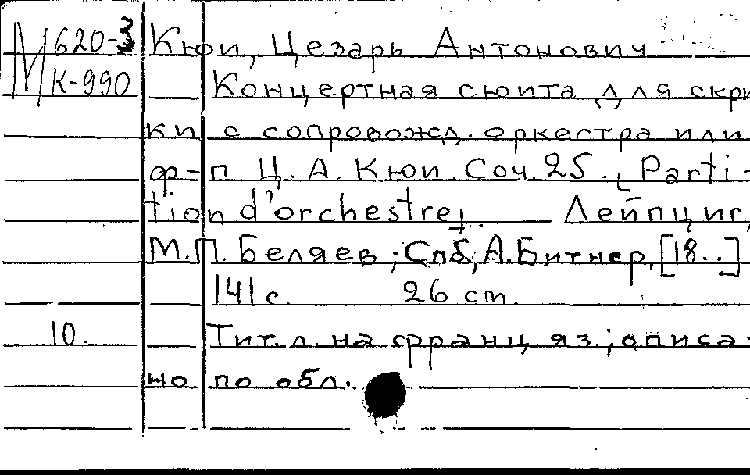 М 620-3 Кюи, Цезарь Антонович
К-990 Концертная сюита для скри
ки с сопровожд. оркестра или
ф-п Ц. А. Кюи. Соч. 25. [Parti-
tion d'orchestre]. Лейпциг,
М.П. Беляев; Спб, А. Битнер, [18..]
141 с. 26 cm.
10. Тит. л. на франц яз.; описа-
но по обл.